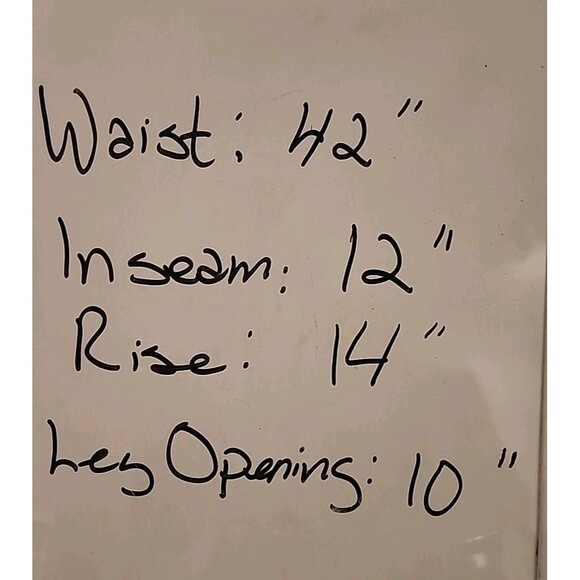 Waist: 42"
Inseam: 12"
Rise: 14"
Leg Opening: 10"